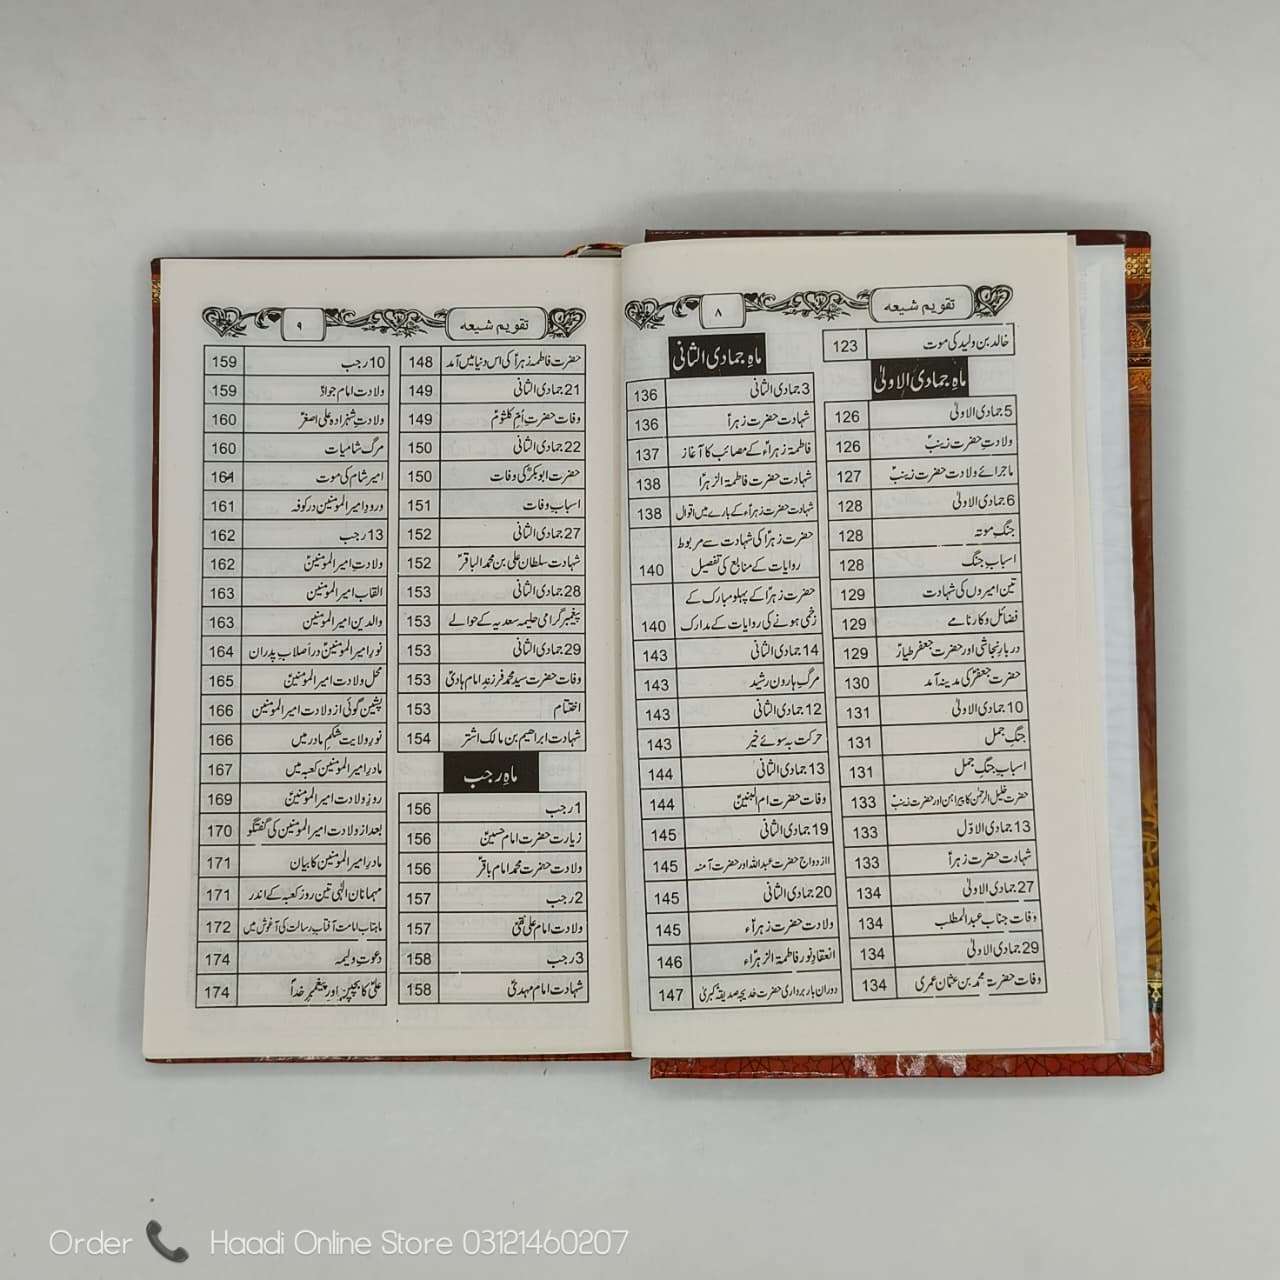 تقویم شیعہ
۸
خالد بن ولید کی موت 123
ماہِ جمادی الاولیٰ
5 جمادی الاولیٰ 126
ولادتِ حضرت زینبؑ 126
ماجرائے ولادت حضرت زینبؑ 127
6 جمادی الاولیٰ 128
جنگِ موتہ 128
اسبابِ جنگ 128
تین امیروں کی شہادت 129
فضائل و کارنامے 129
دربارِ نجاشی اور حضرت جعفر طیارؑ 129
حضرت جعفرؑ کی مدینہ آمد 130
10 جمادی الاولیٰ 131
جنگِ جمل 131
اسبابِ جنگِ جمل 131
حضرت خلیل الرحمٰن کا پیراہن اور حضرت زینبؑ 133
13 جمادی الاوّل 133
شہادت حضرت زہراؑ 133
27 جمادی الاولیٰ 134
وفات جناب عبدالمطلب 134
29 جمادی الاولیٰ 134
وفات حضرت محمد بن عثمان عمری 134
ماہِ جمادی الثانی
3 جمادی الثانی 136
شہادت حضرت زہراؑ 136
فاطمۃ زہراءؑ کے مصائب کا آغاز 137
شہادت حضرت فاطمۃ الزہراؑ 138
شہادت حضرت زہراءؑ کے بارے میں اقوال 138
حضرت زہراؑ کی شہادت سے مربوط
روایات کے منابع کی تفصیل 140
حضرت زہراؑ کے پہلو مبارک کے
زخمی ہونے کی روایات کے مدارک 140
14 جمادی الثانی 143
مرگِ ہارون رشید 143
12 جمادی الثانی 143
حرکت بہ سوئے خیبر 143
13 جمادی الثانی 144
وفات حضرت ام البنینؑ 144
19 جمادی الثانی 145
ازدواج حضرت عبداللہ اور حضرت آمنہ 145
20 جمادی الثانی 145
ولادت حضرت زہراءؑ 145
انعقادِ نور فاطمۃ الزہراءؑ 146
دوران بار برداری حضرت خدیجہ صدیقۃ کبریٰ 147
تقویم شیعہ
۹
حضرت فاطمہ زہراؑ کی اس دنیا میں آمد 148
21 جمادی الثانی 149
وفات حضرت اُم کلثومؑ 149
22 جمادی الثانی 150
حضرت ابوبکرؓ کی وفات 150
اسبابِ وفات 151
27 جمادی الثانی 152
شہادت سلطان علی بن محمد الباقرؑ 152
28 جمادی الثانی 153
پیغمبر گرامی حلیمہ سعدیہ کے حوالے 153
29 جمادی الثانی 153
وفات حضرت سید محمد فرزندِ امام ہادیؑ 153
اختتام 153
شہادت ابراھیم بن مالک اشتر 154
ماہِ رجب
1 رجب 156
زیارت حضرت امام حسینؑ 156
ولادت حضرت محمد امام باقرؑ 156
2 رجب 157
ولادت امام علی نقیؑ 157
3 رجب 158
شہادت امام مہدیؑ 158
10 رجب 159
ولادت امام جوادؑ 159
ولادتِ شہزادہ علی اصغرؑ 160
مرگ شامیات 160
امیر شام کی موت 164
ورودِ امیر المومنین در کوفہ 161
13 رجب 162
ولادتِ امیر المومنینؑ 162
القاب امیر المومنین 163
والدین امیر المومنین 163
نورِ امیر المومنینؑ در اَصلاب پدران 164
محل ولادت امیر المومنینؑ 165
پیشین گوئی از ولادت امیر المومنین 166
نورِ ولایت شکمِ مادر میں 166
مادرِ امیر المومنین کعبہ میں 167
روزِ ولادت امیر المومنینؑ 169
بعد از ولادت امیر المومنین کی گفتگو 170
مادرِ امیر المومنین کا بیان 171
مہمانان الٰہی تین روز کعبہ کے اندر 171
ماہتاب امامت آفتاب رسالت کی آغوش میں 172
دعوتِ ولیمہ 174
علیؑ کا بچپن اور پیغمبرِ خداؐ 174
Order Haadi Online Store 03121460207